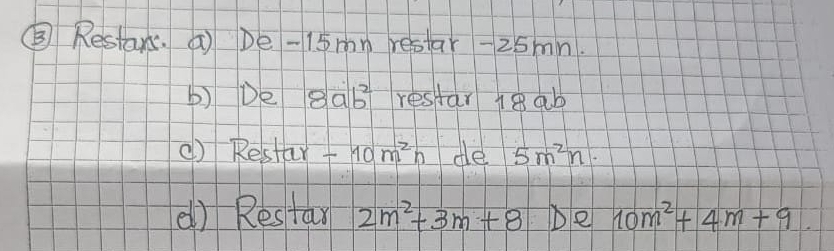 ③ Restars. a) De -15mn restar -25mn.
b) De 8ab² restar 18ab
c) Restar - 10m²n de 5m²n.
d) Restar 2m²+3m+8 De 10m²+4m+9.